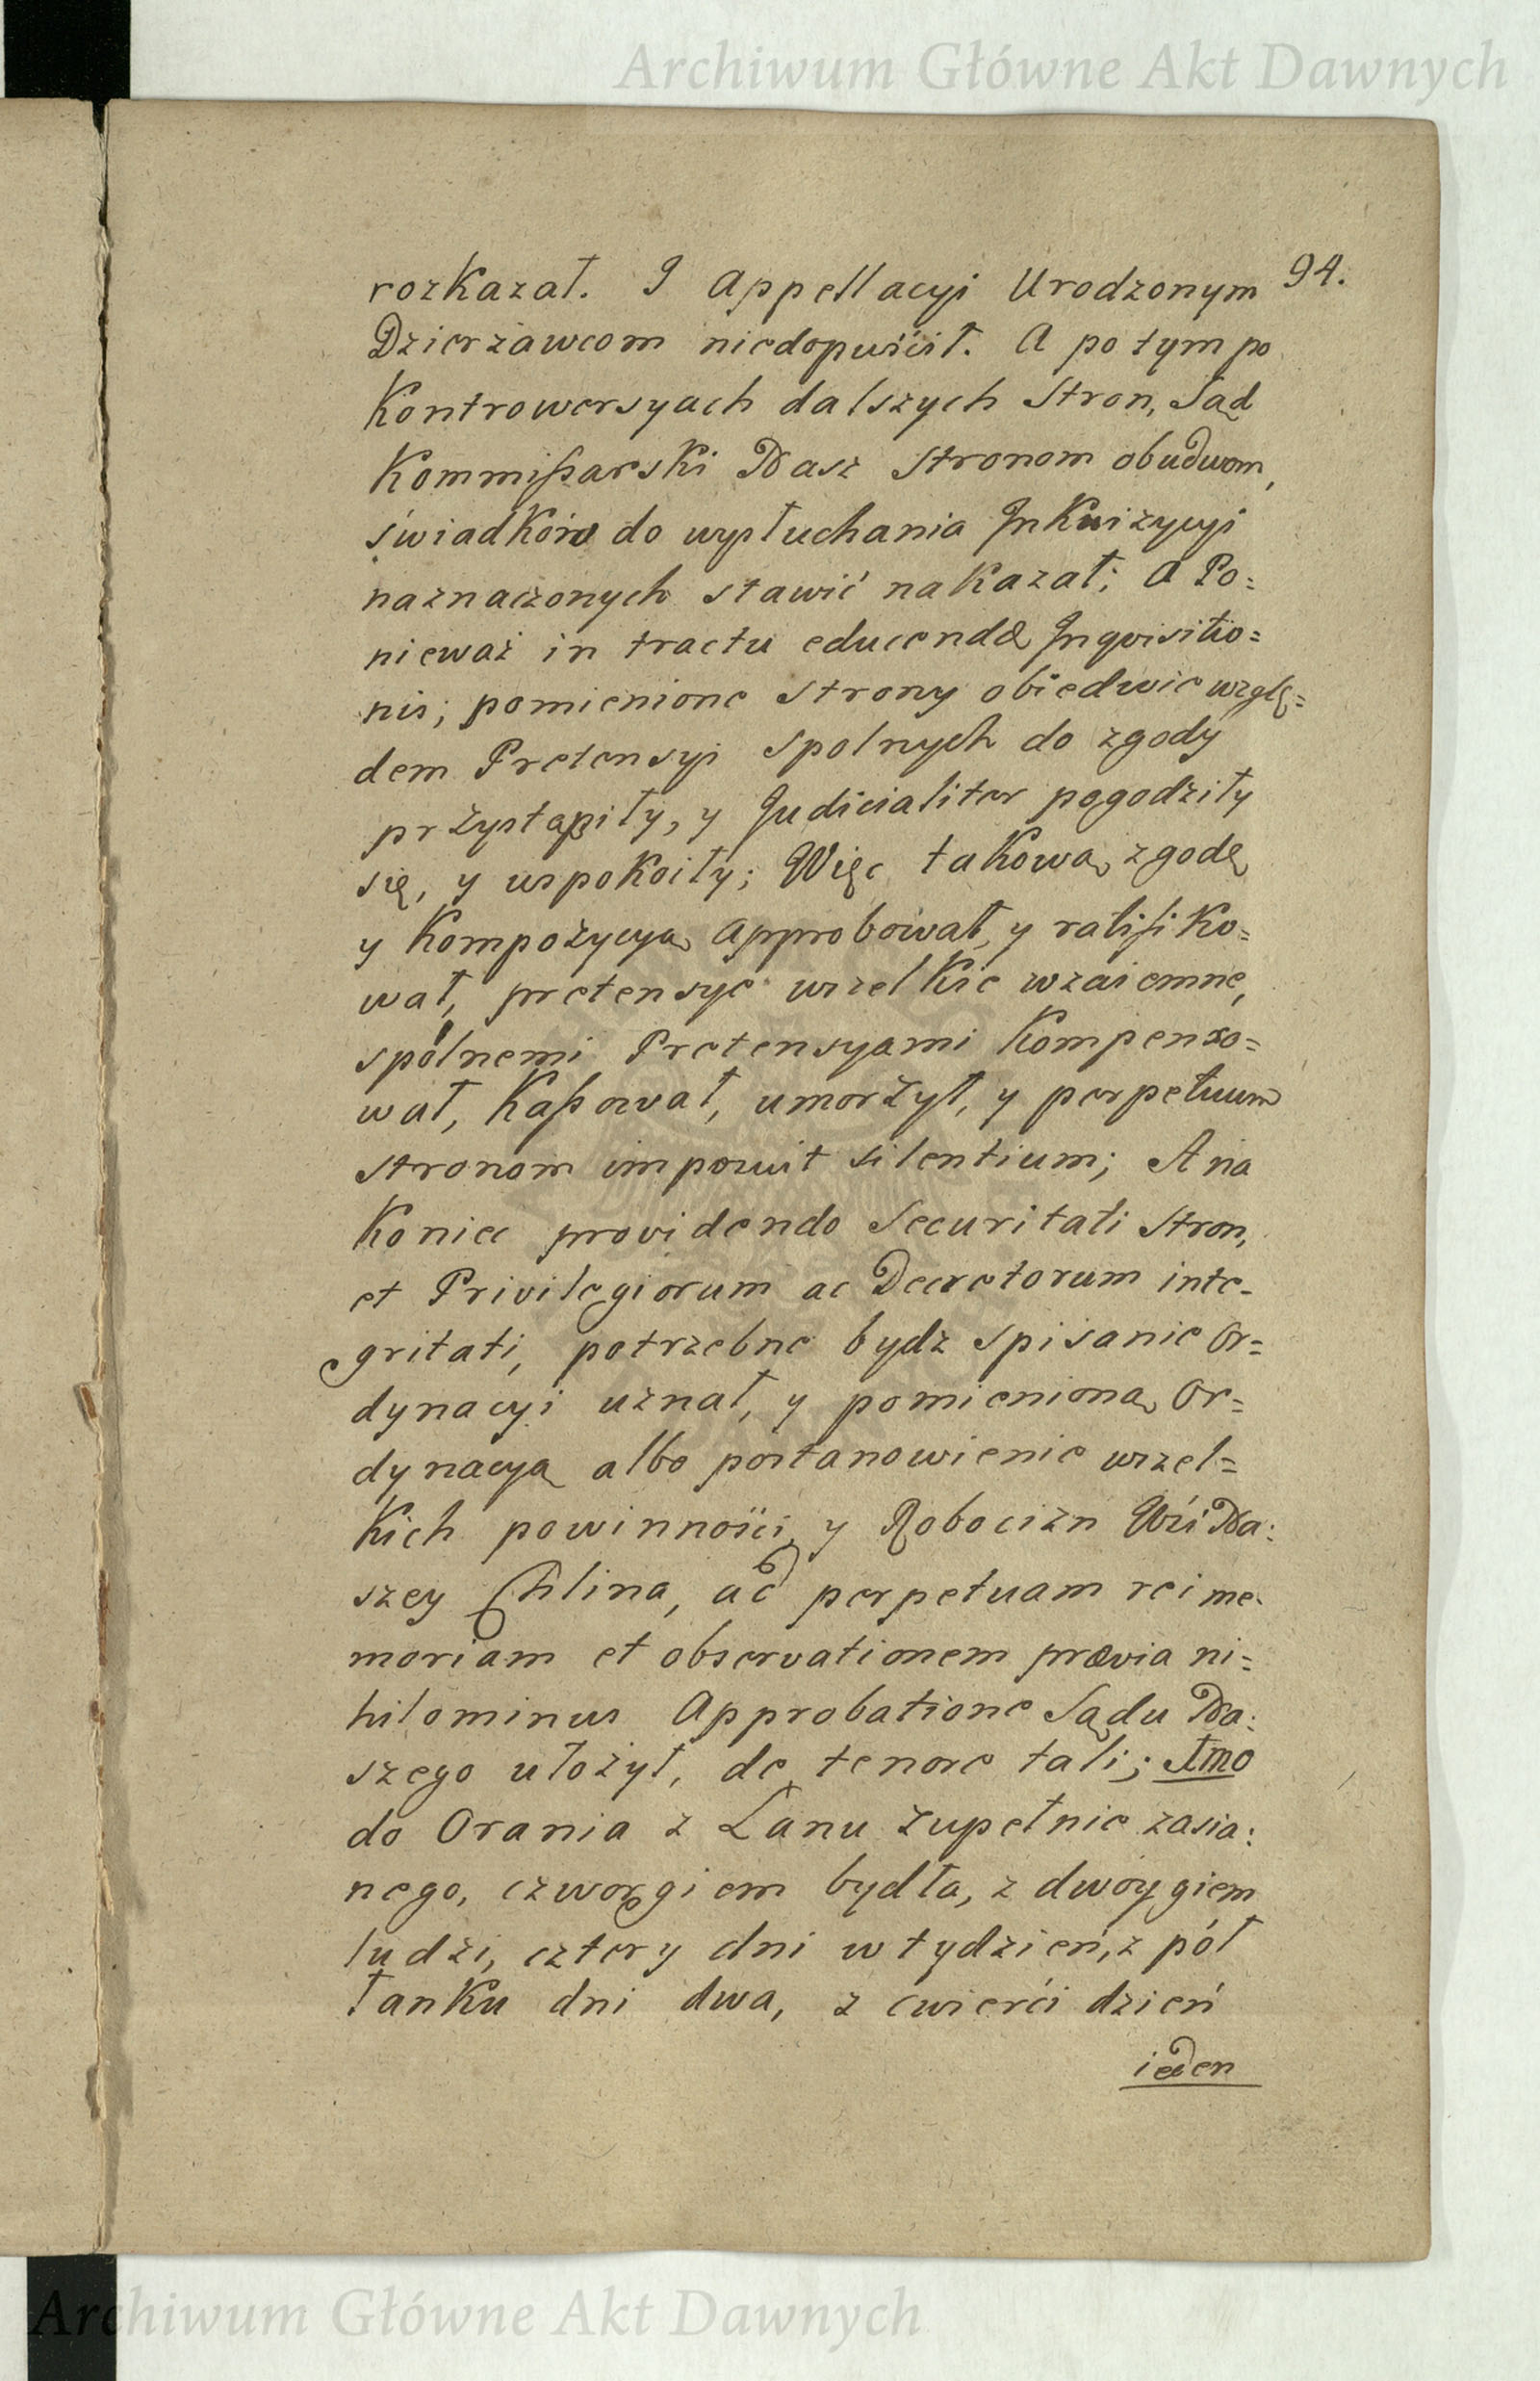 Archiwum Główne Akt Dawnych
94.
rozkazał. I Appellacyi Urodzonym
Dzierżawcom niedopuścił. A potym po
Kontrowersyach dalszych Stron, Sąd
Kommißarski Nasz Stronom obudwom,
świadków do wysłuchania Inkwizycyi
naznaczonych stawić nakazał; A Po=
nieważ in tractu educendæ Inqvisitio=
nis; pomienione Strony obiedwie wzglę=
dem Pretensyi Spolnych do zgody
przystąpiły, y Judicialiter pogodziły
się, y uspokoiły; Więc takową zgodę
y Kompozycyą Approbował, y ratifiko=
wał, pretensye wszelkie wzaiemne,
spólnemi Pretensyami Kompenso=
wał, Kaßował, umorzył, y perpetuum
stronom imposuit silentium; A na
Koniec providendo Securitati Stron,
et Privilegiorum ac Decretorum inte=
gritati, potrzebne bydz Spisanie Or=
dynacyi uznał, y pomienioną Or=
dynacyą albo postanowienie wszel=
kich powinności, y Robocizn Wsi Na:
szey Chlina, ad perpetuam rei me=
moriam et observationem prævia ni=
hilominus Approbatione Sądu Na:
szego ułożył, de tenore tali; 1mo
do Orania z Łanu zupełnie zasia:
nego, czworgiem bydła, z dwoygiem
ludzi, cztery dni w tydzień, z pół
łanku dni dwa, z cwierci dzień
ieden
Archiwum Główne Akt Dawnych